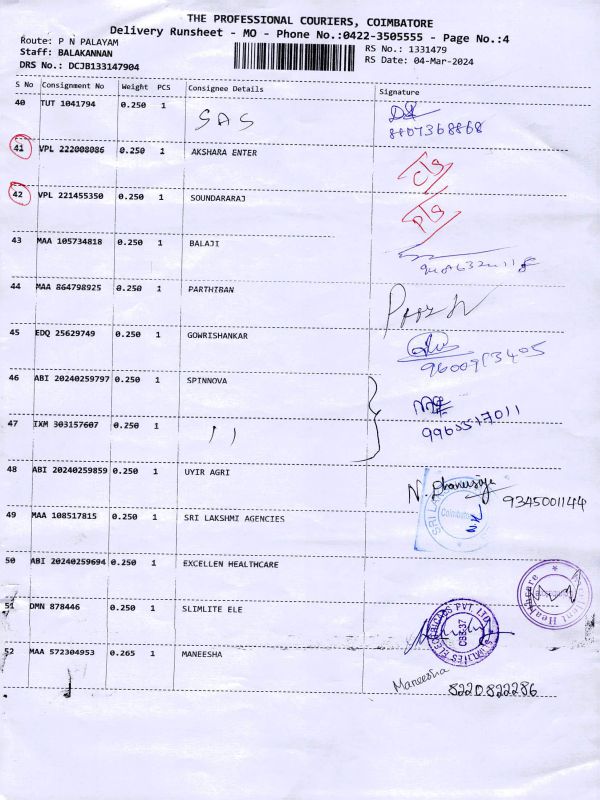 THE PROFESSIONAL COURIERS, COIMBATORE
Delivery Runsheet - MO - Phone No.:0422-3505555 - Page No.:4
Route: P N PALAYAM
Staff: BALAKANNAN
DRS No.: DCJB133147904
RS No.: 1331479
RS Date: 04-Mar-2024
S No Consignment No Weight PCS Consignee Details Signature
40 TUT 1041794 0.250 1 SAS
8807368868
41 VPL 222008086 0.250 1 AKSHARA ENTER
42 VPL 221455350 0.250 1 SOUNDARARAJ
43 MAA 105734818 0.250 1 BALAJI
44 MAA 864798925 0.250 1 PARTHIBAN
45 EDQ 25629749 0.250 1 GOWRISHANKAR
9600913405
46 ABI 20240259797 0.250 1 SPINNOVA
47 IXM 303157607 0.250 1 11
9965517011
48 ABI 20240259859 0.250 1 UYIR AGRI
9345001144
49 MAA 108517815 0.250 1 SRI LAKSHMI AGENCIES
Coimbatore
50 ABI 20240259694 0.250 1 EXCELLEN HEALTHCARE
Healthcare
51 DMN 878446 0.250 1 SLIMLITE ELE
PVT LTD
52 MAA 572304953 0.265 1 MANEESHA
Maneesha 8220822286